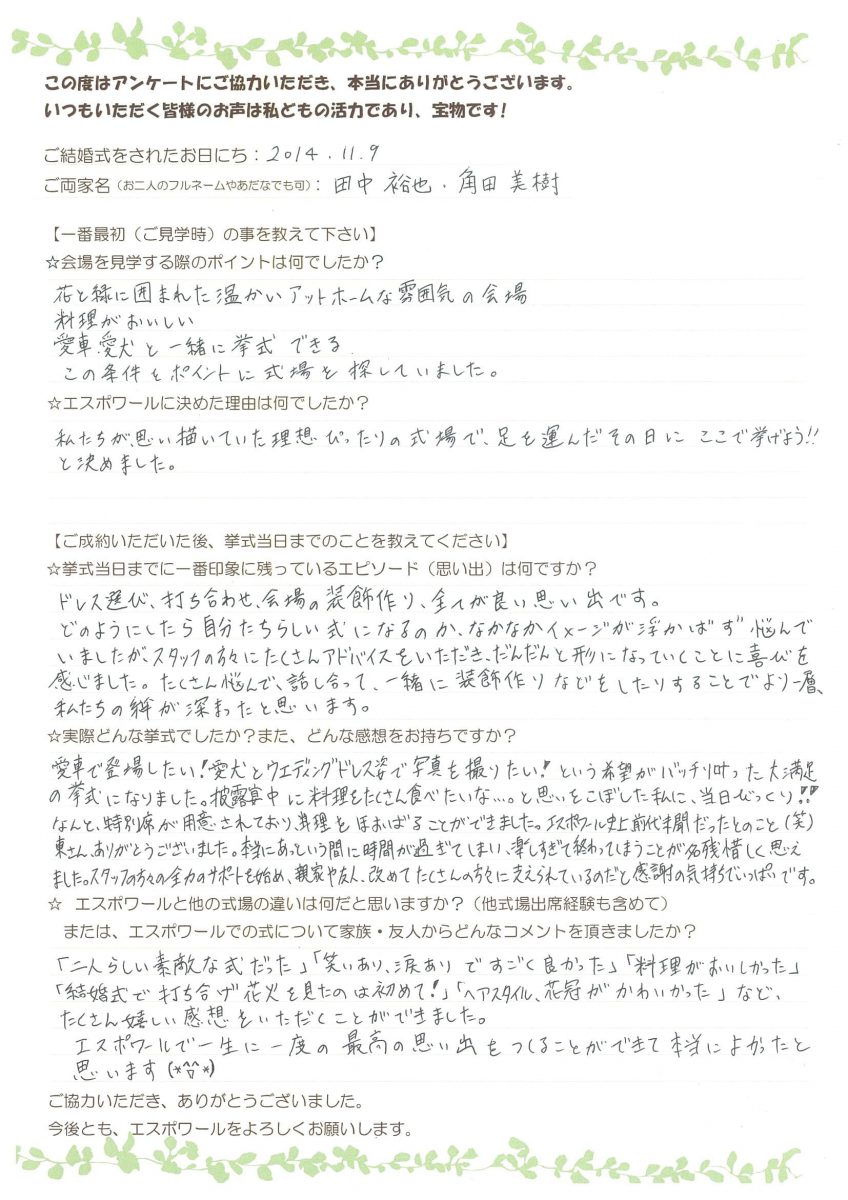 この度はアンケートにご協力いただき、本当にありがとうございます。
いつもいただく皆様のお声は私どもの活力であり、宝物です!
ご結婚式をされたお日にち：2014.11.9
ご両家名（お二人のフルネームやあだなでも可）：田中 裕也・角田 美樹
【一番最初（ご見学時）の事を教えて下さい】
☆会場を見学する際のポイントは何でしたか？
花と緑に囲まれた温かいアットホームな雰囲気の会場
料理がおいしい
愛車、愛犬と一緒に挙式できる
この条件をポイントに式場を探していました。
☆エスポワールに決めた理由は何でしたか？
私たちが、思い描いていた理想ぴったりの式場で、足を運んだその日にここで挙げよう!!
と決めました。
【ご成約いただいた後、挙式当日までのことを教えてください】
☆挙式当日までに一番印象に残っているエピソード（思い出）は何ですか？
ドレス選び、打ち合わせ、会場の装飾作り、全てが良い思い出です。
どのようにしたら自分たちらしい式になるのか、なかなかイメージが浮かばず悩んで
いましたが、スタッフの方々にたくさんアドバイスをいただき、だんだんと形になっていくことに喜びを
感じました。たくさん悩んで、話し合って、一緒に装飾作りなどをしたりすることでより一層、
私たちの絆が深まったと思います。
☆実際どんな挙式でしたか？また、どんな感想をお持ちですか？
愛車で登場したい!愛犬とウエディングドレス姿で写真を撮りたい!という希望がバッチリ叶った大満足
の挙式になりました。披露宴中に料理をたくさん食べたいな…。と思いをこぼした私に、当日びっくり!!
なんと、特別席が用意されており、料理をほおばることができました。エスポワール史上前代未聞だったとのこと(笑)
東さん、ありがとうございました。本当にあっという間に時間が過ぎてしまい、楽しすぎて終わってしまうことが名残惜しく思え
ました。スタッフの方々の全力のサポートを始め、親家や友人、改めてたくさんの方々に支えられているのだと感謝の気持ちでいっぱいです。
☆ エスポワールと他の式場の違いは何だと思いますか？（他式場出席経験も含めて）
または、エスポワールでの式について家族・友人からどんなコメントを頂きましたか？
「二人らしい素敵な式だった」「笑いあり、涙ありですごく良かった」「料理がおいしかった」
「結婚式で打ち合げ花火を見たのは初めて!」「ヘアスタイル、花冠がかわいかった」など、
たくさん嬉しい感想をいただくことができました。
エスポワールで一生に一度の最高の思い出をつくることができて本当によかったと
思います(*^^*)
ご協力いただき、ありがとうございました。
今後とも、エスポワールをよろしくお願いします。